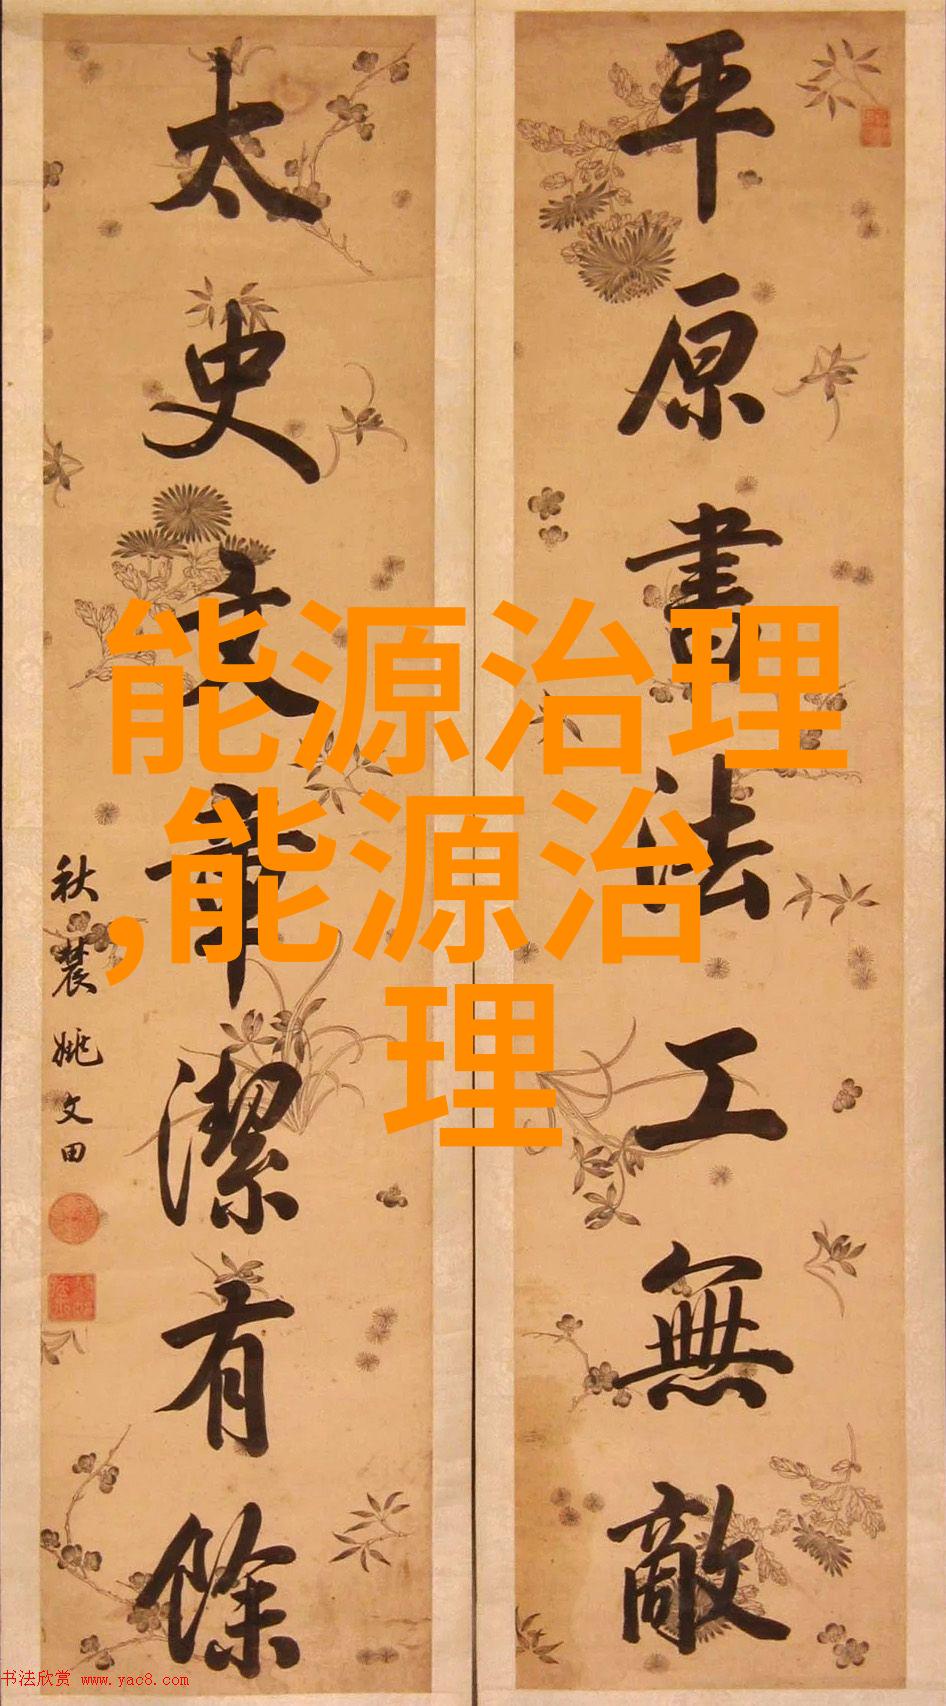 平原書法工無敵
太史文章潔有餘
秋農姚文田
能源治理
,能源治
理
书法欣赏 www.yac8.com